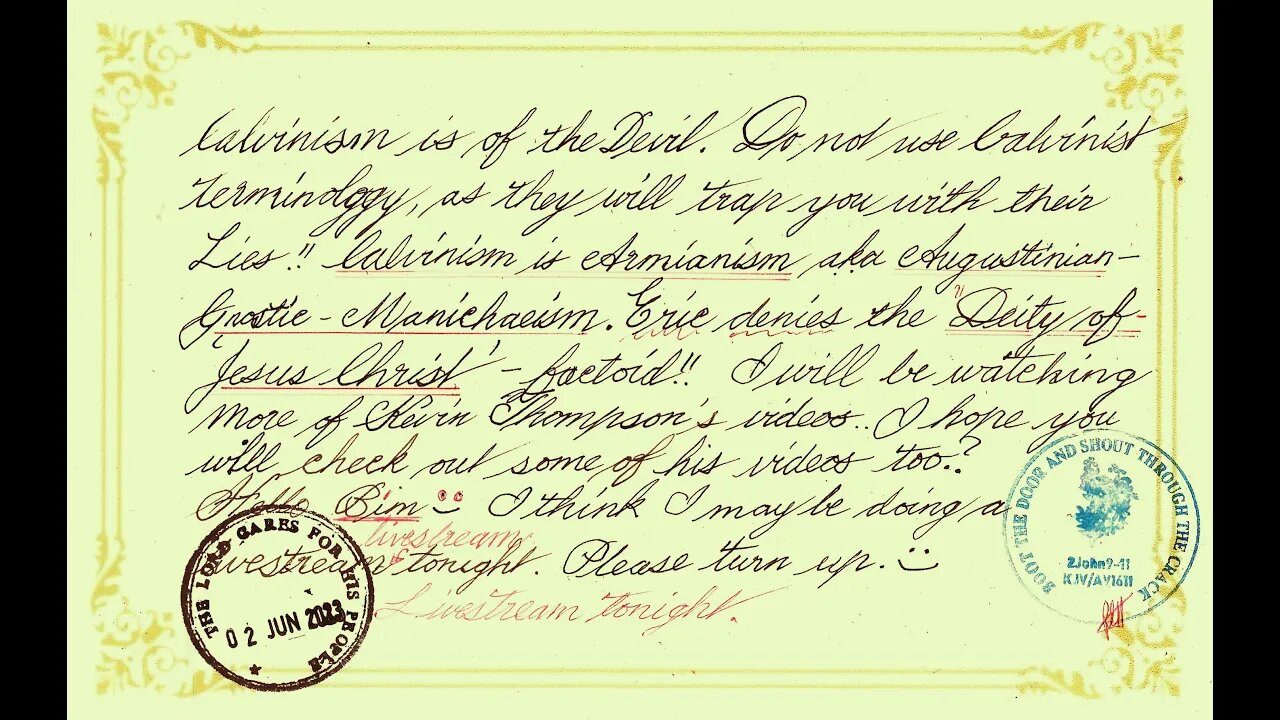 Calvinism is of the Devil. Do not use Calvinist
Terminology, as they will trap you with their
Lies!! Calvinism is Armianism aka Augustinian-
Gnostic-Manichaeism. Eric denies the "Deity of
Jesus Christ' - factoid!! I will be watching
more of Kevin Thompson's videos.. I hope you
will check out some of his videos too.?
Hello Bim I think I may be doing a
livestream
livestream tonight. Please turn up.
Livestream tonight.
THE LORD CARES FOR HIS PEOPLE
02 JUN 2023
BOOT THE DOOR AND SHOUT THROUGH THE CRACK
2John9-11
KJV/AV1611